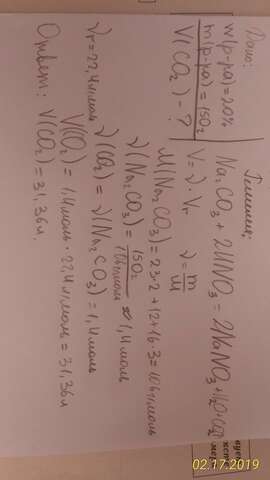 Дано:
w(р-ра)=20%
m(р-ра)=150г
V(CO2) - ?
Решение:
Na2CO3 + 2HNO3 = 2NaNO3 + H2O + CO2
V = ν · Vr ν = m/M
M(Na2CO3) = 23·2 + 12 + 16·3 = 106 г/моль
ν(Na2CO3) = 150г/106г/моль = 1,4 моль
ν(CO2) = ν(Na2CO3) = 1,4 моль
Vr = 22,4 л/моль
V(CO2) = 1,4 моль · 22,4 л/моль = 31,36 л
Ответ: V(CO2) = 31,36 л.
02.17.2019